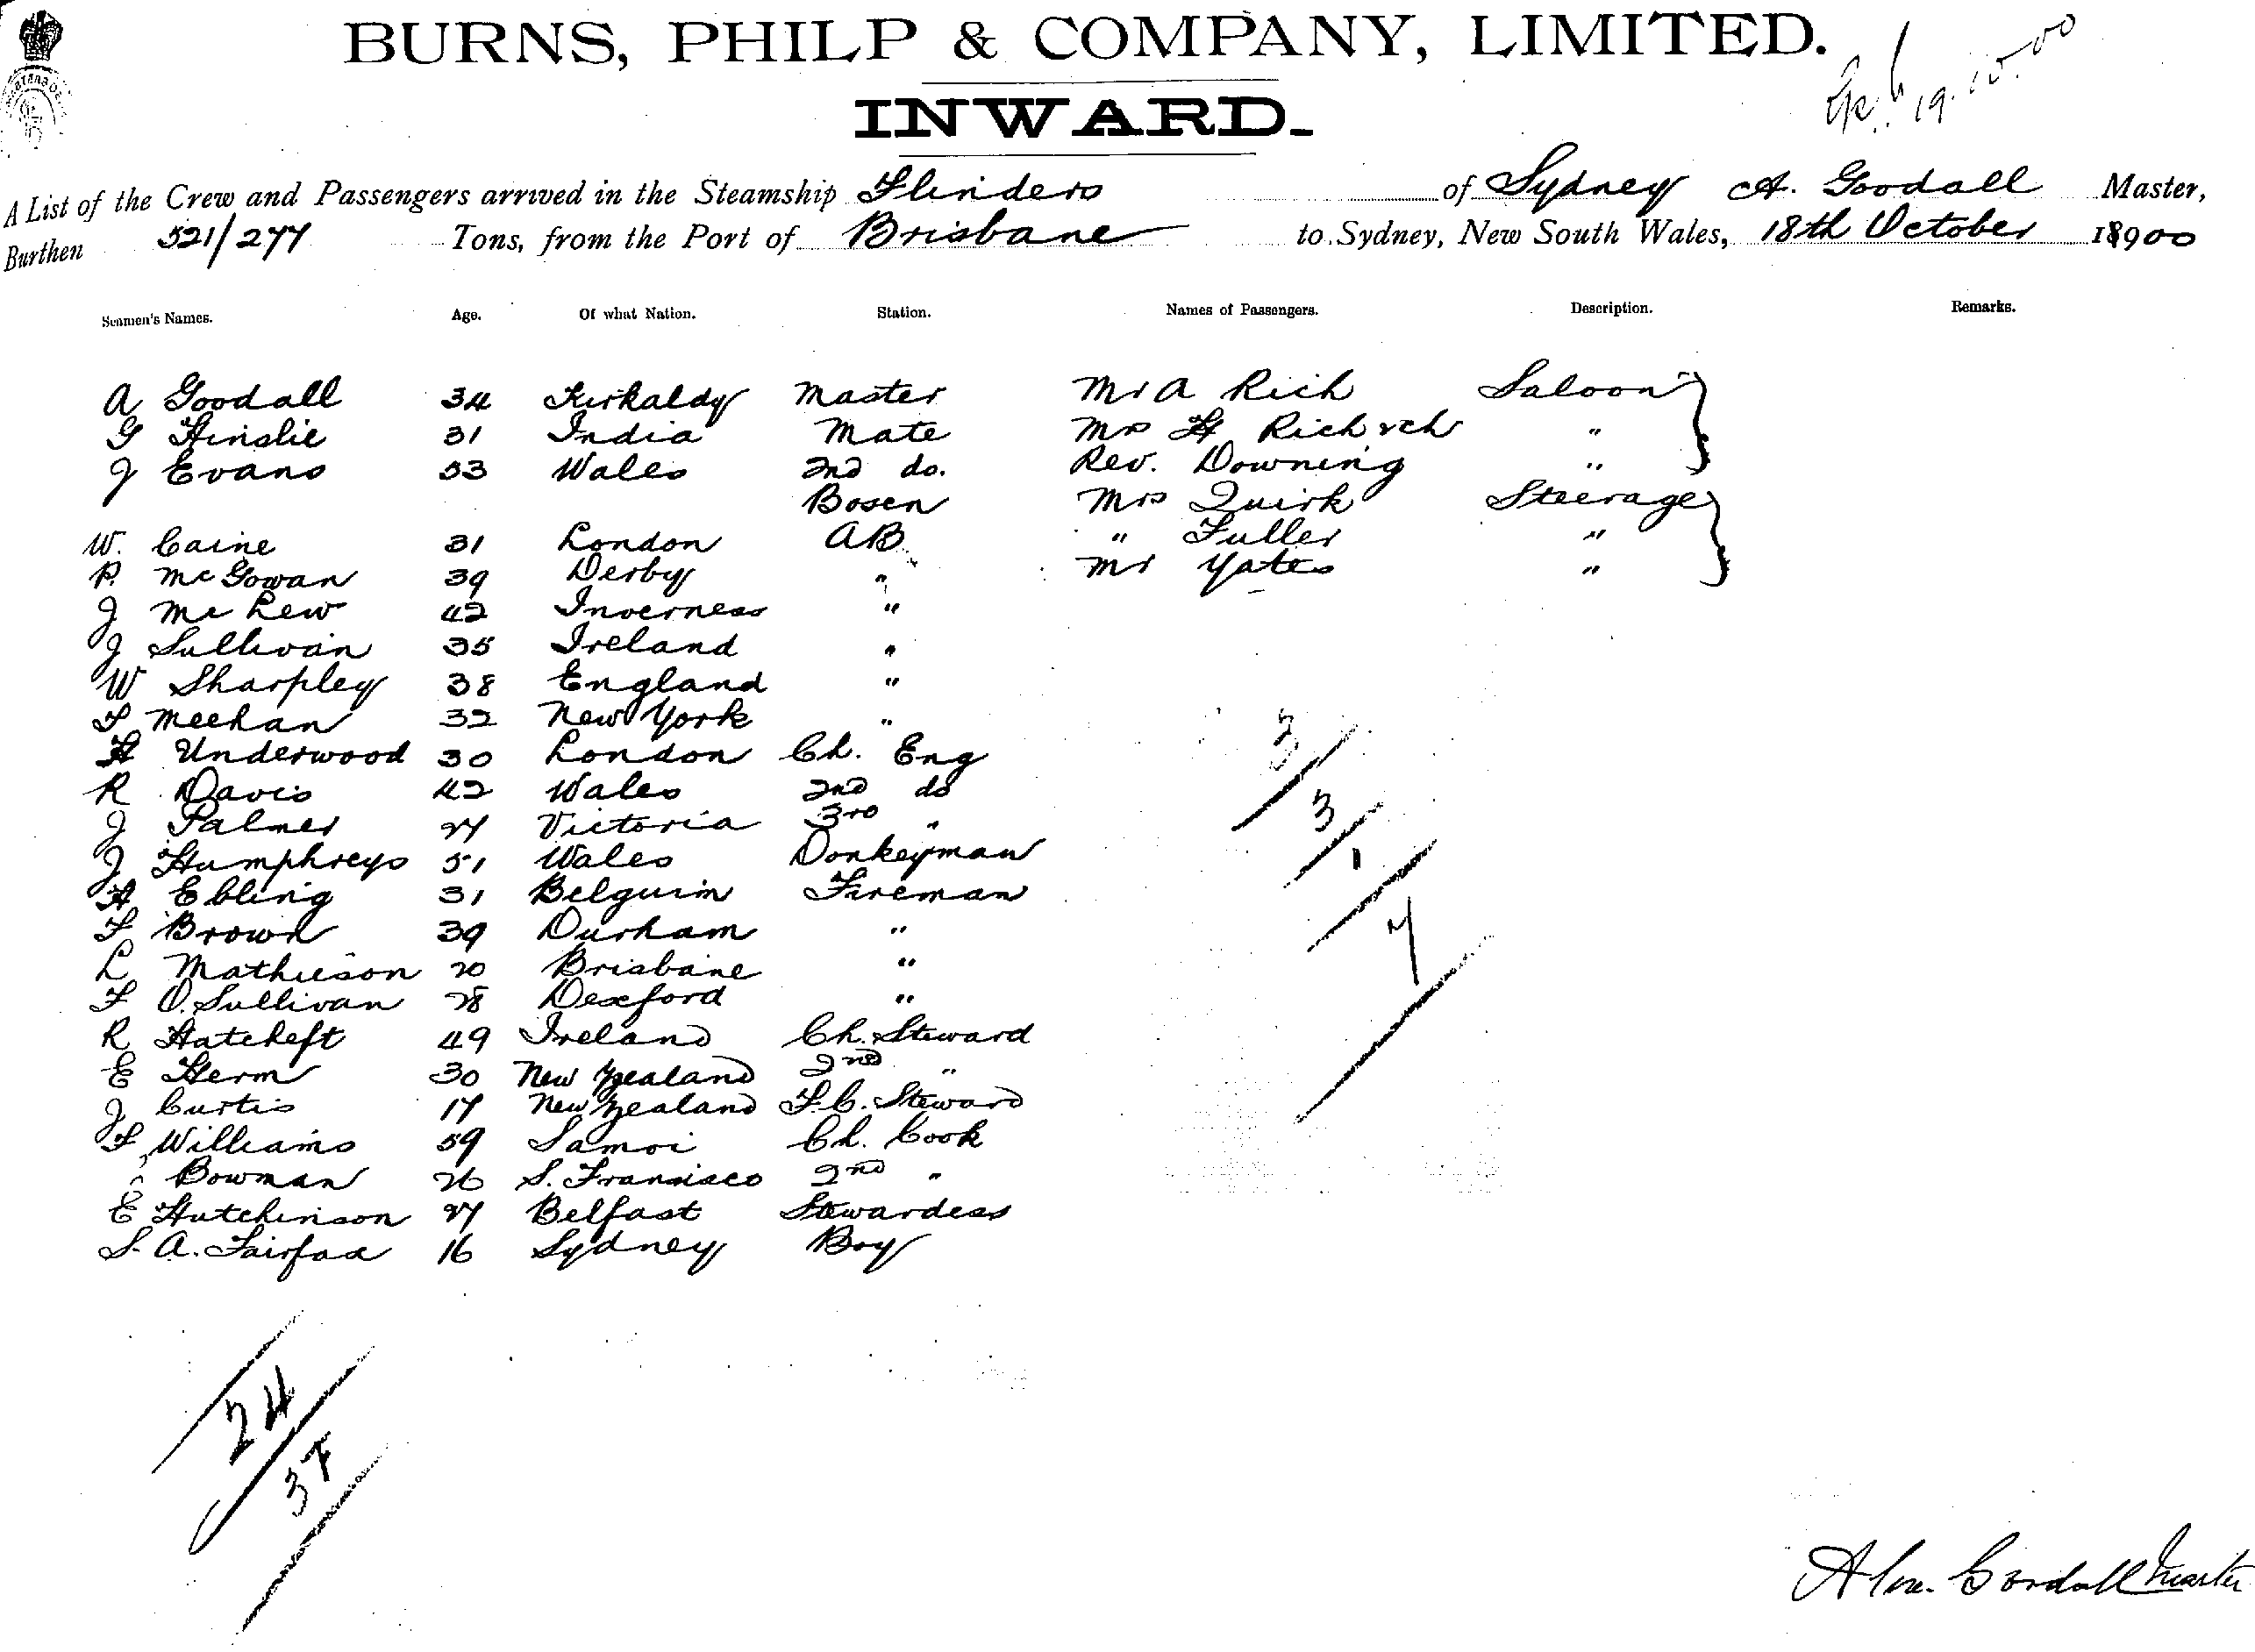 BURNS, PHILP & COMPANY, LIMITED.
19.10.00
INWARD.
A List of the Crew and Passengers arrived in the Steamship Flinders of Sydney A. Goodall Master,
Burthen 521/277 Tons, from the Port of Brisbane to Sydney, New South Wales, 18th October 18900
Seamen's Names. Age. Of what Nation. Station. Names of Passengers. Description. Remarks.
A Goodall 34 Kirkaldy Master Mr A Rich Saloon
G Hinslie 31 India Mate Mrs H Rich & ch "
J Evans 53 Wales 2nd do. Rev. Downing "
Bosen Mrs Quirk Steerage
W. Caine 31 London AB " Fuller "
P. McGowan 39 Derby " Mr Yates "
J Mc Lew 42 Inverness "
J Sullivan 35 Ireland "
W Sharpley 38 England "
T Meehan 32 New York "
H Underwood 30 London Ch. Eng
R Davis 42 Wales 2nd do
J Palmer 27 Victoria 3rd "
J Humphreys 51 Wales Donkeyman
H Ebling 31 Belguim Fireman
F Brown 39 Durham "
L Mathieson 20 Brisbane "
F O.Sullivan 28 Dexford "
R Hatcheft 49 Ireland Ch. Steward
E Herm 30 New Zealand 2nd "
J Curtis 17 New Zealand F.C. Steward
F Williams 59 Samoi Ch. Cook
Bowman 26 S. Fransisco 2nd "
E Hutchinson 27 Belfast Stewardess
S. A. Fairfax 16 Sydney Boy
3
3
1
7
24
Goodall Master